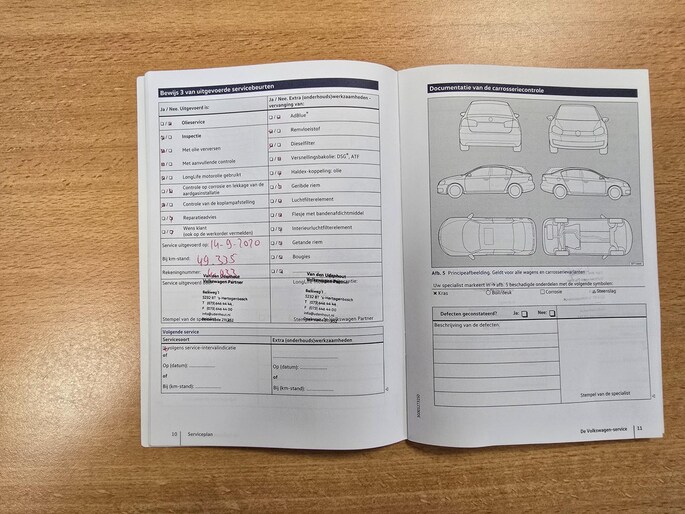 Bewijs 3 van uitgevoerde servicebeurten
Ja / Nee. Uitgevoerd is:
Olieservice
Inspectie
Met olie verversen
Met aanvullende controle
LongLife motorolie gebruikt
Controle op corrosie en lekkage van de
aardgasinstallatie
Controle van de koplampafstelling
Reparatieadvies
Wens klant
(ook op de werkorder vermelden)
Ja / Nee. Extra (onderhouds)werkzaamheden -
vervanging van:
AdBlue®
Remvloeistof
Dieselfilter
Versnellingsbakolie: DSG®, ATF
Haldex-koppeling: olie
Geribde riem
Luchtfilterelement
Flesje met bandenafdichtmiddel
Interieurluchtfilterelement
Getande riem
Bougies
Service uitgevoerd op: 14-9-2020
Bij km-stand: 49.325
Rekeningnummer:
Service uitgevoerd
Van den Udenhout
Volkswagen Partner
5232 BT 's-Hertogenbosch
Stempel van de
Van den Udenhout
Volkswagen Partner
5232 BT 's-Hertogenbosch
Volkswagen Partner
Volgende service
Servicesoort
Extra (onderhouds)werkzaamheden
volgens service-intervalindicatie
of
Op (datum):
of
Bij (km-stand):
Op (datum):
of
Bij (km-stand):
10 Serviceplan
Documentatie van de carrosseriecontrole
Afb. 5 Principeafbeelding. Geldt voor alle wagens en carrosserievarianten
Uw specialist markeert in afb. 5 beschadigde onderdelen met de volgende symbolen:
Kras
Buil/deuk
Corrosie
Steenslag
Defecten geconstateerd?
Ja:
Nee:
Beschrijving van de defecten:
Stempel van de specialist
De Volkswagen-service 11